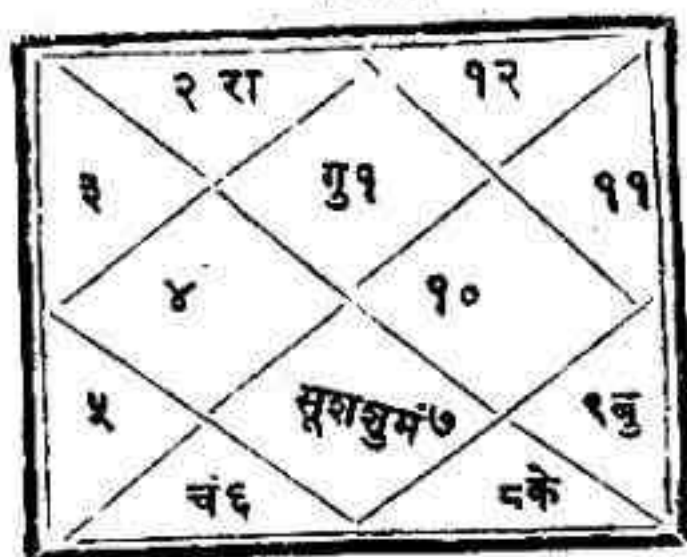 २ रा १२
३ गु१ ११
४ १०
५ सूशशुमं७ ९बु
चं६ ८के